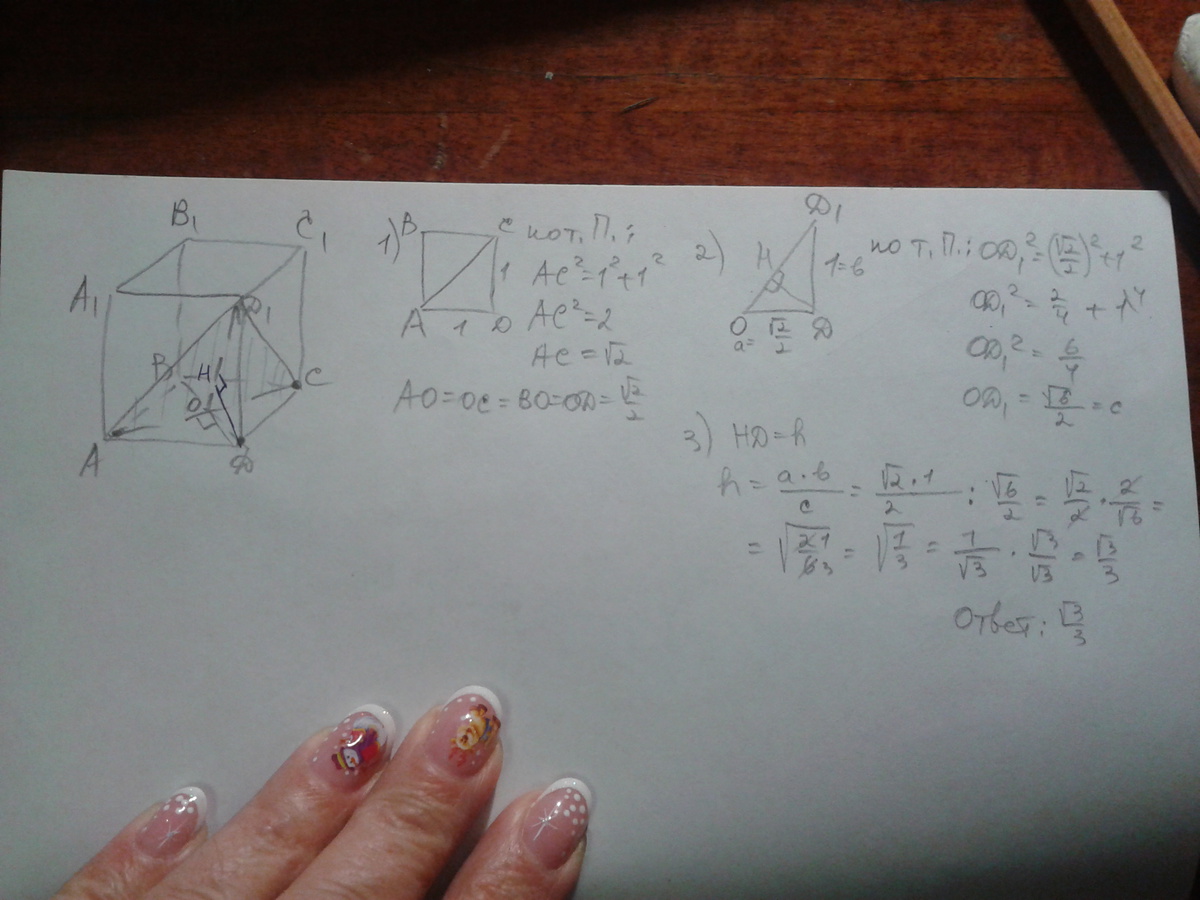 B₁
C₁
A₁
D₁
B
H
C
O
A
D
1) B C по т. П.:
1
A 1 D
AC² = 1² + 1²
AC² = 2
AC = √2
AO = OC = BO = OD = √2/2
2) D₁
H
1 = b
O D
a = √2/2
по т. П.: OD₁² = (√2/2)² + 1²
OD₁² = 2/4 + 1
OD₁² = 6/4
OD₁ = √6/2 = c
3) HD = h
h = a·b/c = √2·1/2 : √6/2 = √2/2 · 2/√6 =
= √(21/63) = √(1/3) = 1/√3 · √3/√3 = √3/3
Ответ: √3/3